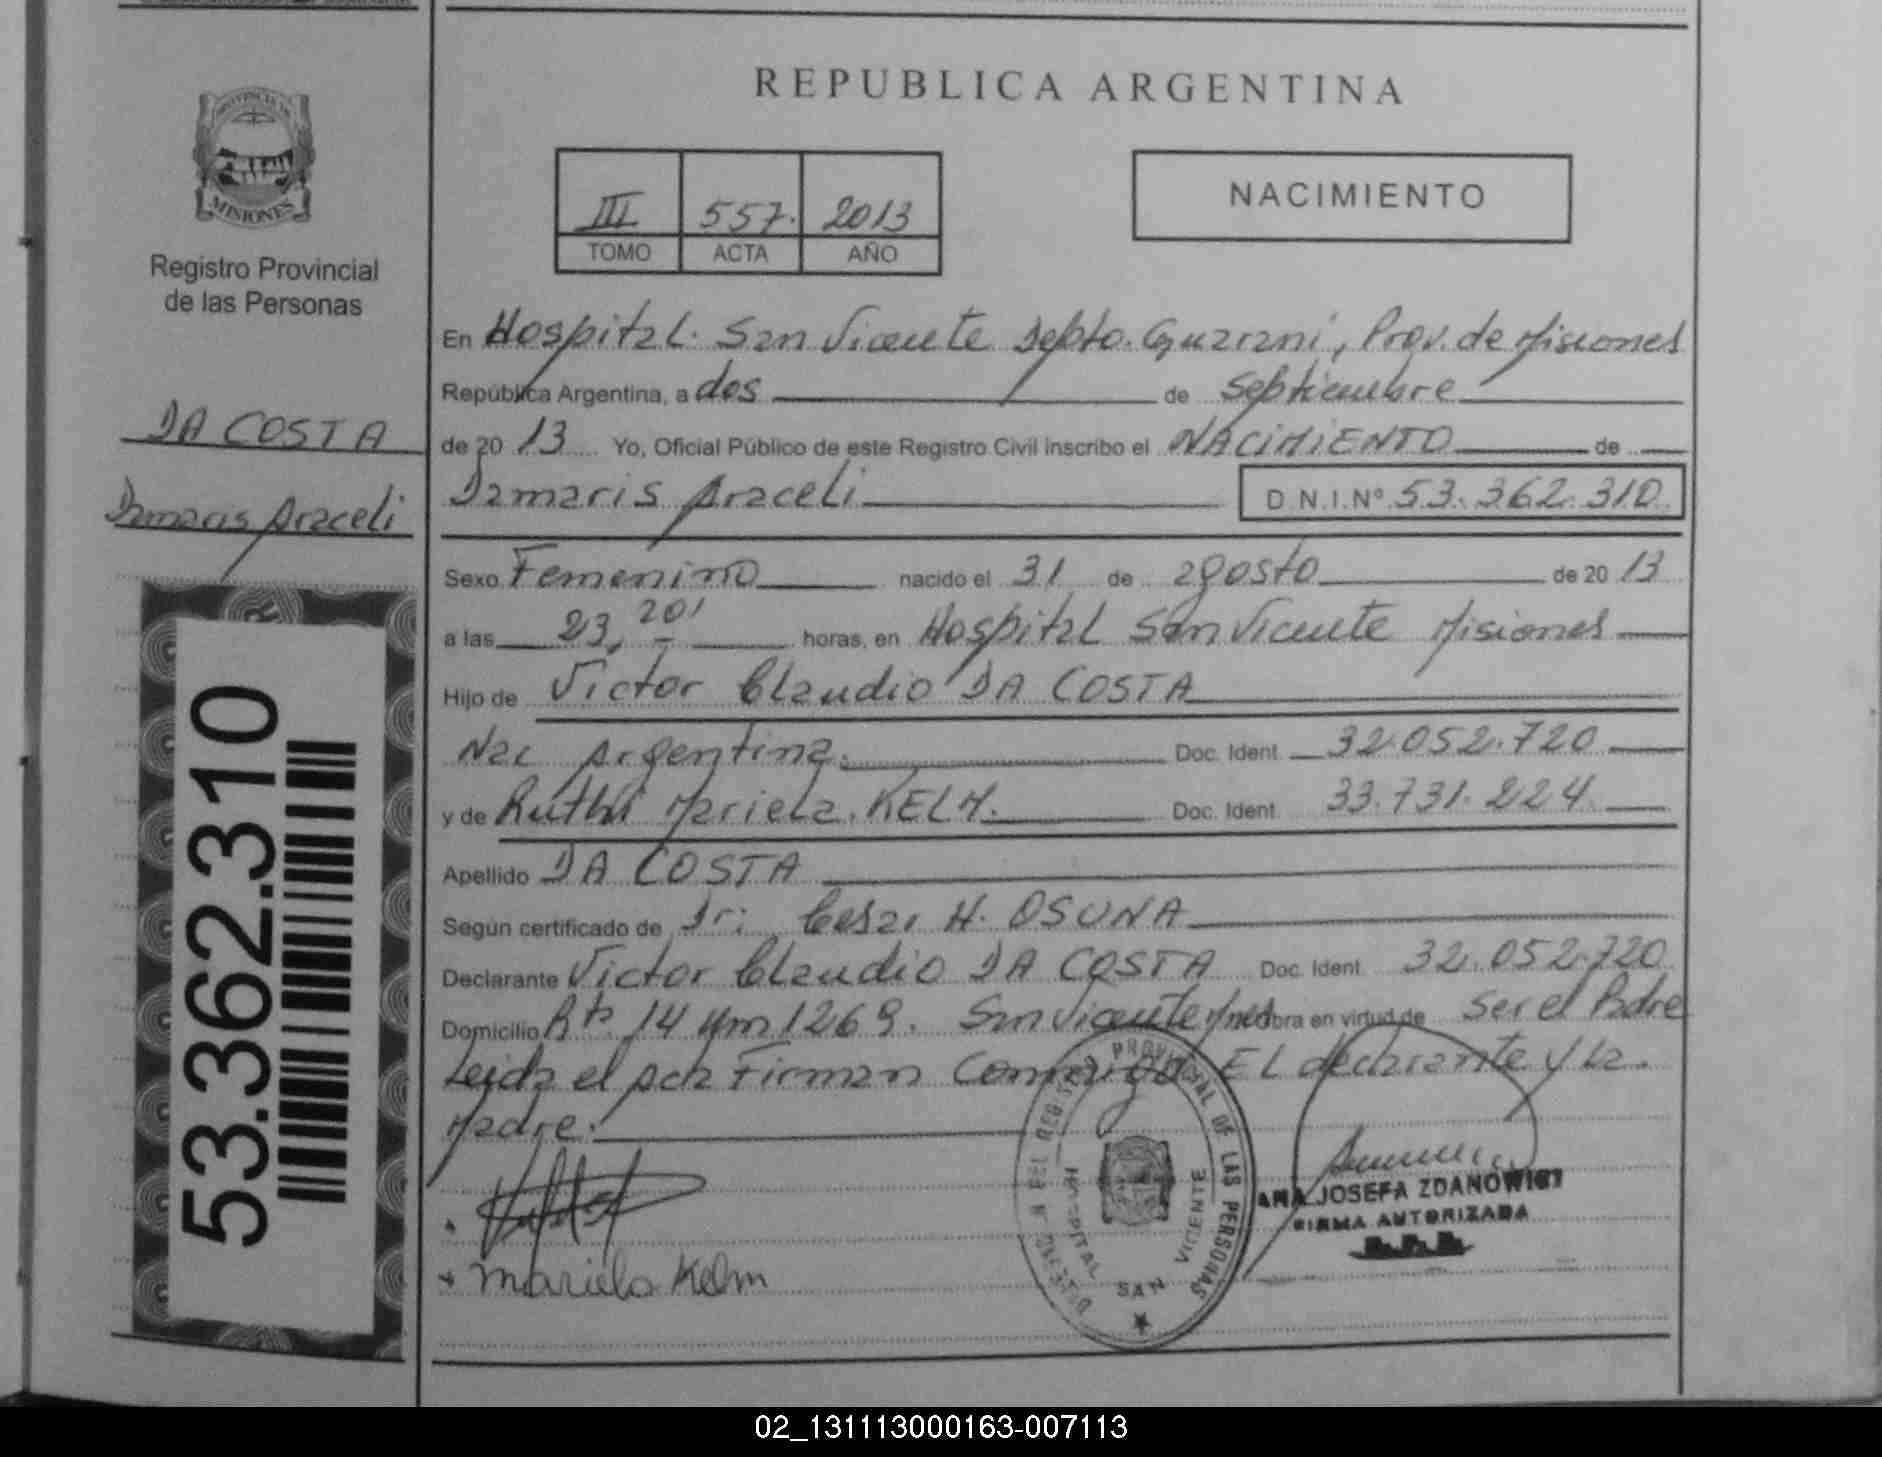 REPUBLICA ARGENTINA
PROVINCIA DE
MISIONES
Registro Provincial
de las Personas
III 557. 2013
TOMO ACTA AÑO
NACIMIENTO
DA COSTA
Damaris Araceli
53.362.310
En Hospital. San Vicente Depto. Guarani, Prov. de Misiones
República Argentina, a dos de Septiembre
de 20 13 Yo, Oficial Público de este Registro Civil inscribo el NACIMIENTO de
Damaris Araceli D.N.I.Nº 53.362.310
Sexo Femenino nacido el 31 de agosto de 20 13
a las 23,20' horas, en Hospital San Vicente Misiones
Hijo de Victor Claudio DA COSTA
Nac Argentina. Doc. Ident. 32.052.720
y de Ruthi Mariela. KELM. Doc. Ident. 33.731.224
Apellido DA COSTA
Según certificado de Dr: Cesar H. OSUNA
Declarante Victor Claudio DA COSTA Doc. Ident. 32.052.720
Domicilio Rta 14 Km 1269. San Vicente Mnes obra en virtud de Ser el Padre
Leida el Acta Firman Conmigo El declarante y La.
Madre.
Mariela Kelm
REGISTRO PROVINCIAL DE LAS PERSONAS
HOSPITAL SAN VICENTE
ANA JOSEFA ZDANOWIST
FIRMA AUTORIZADA
02_131113000163-007113